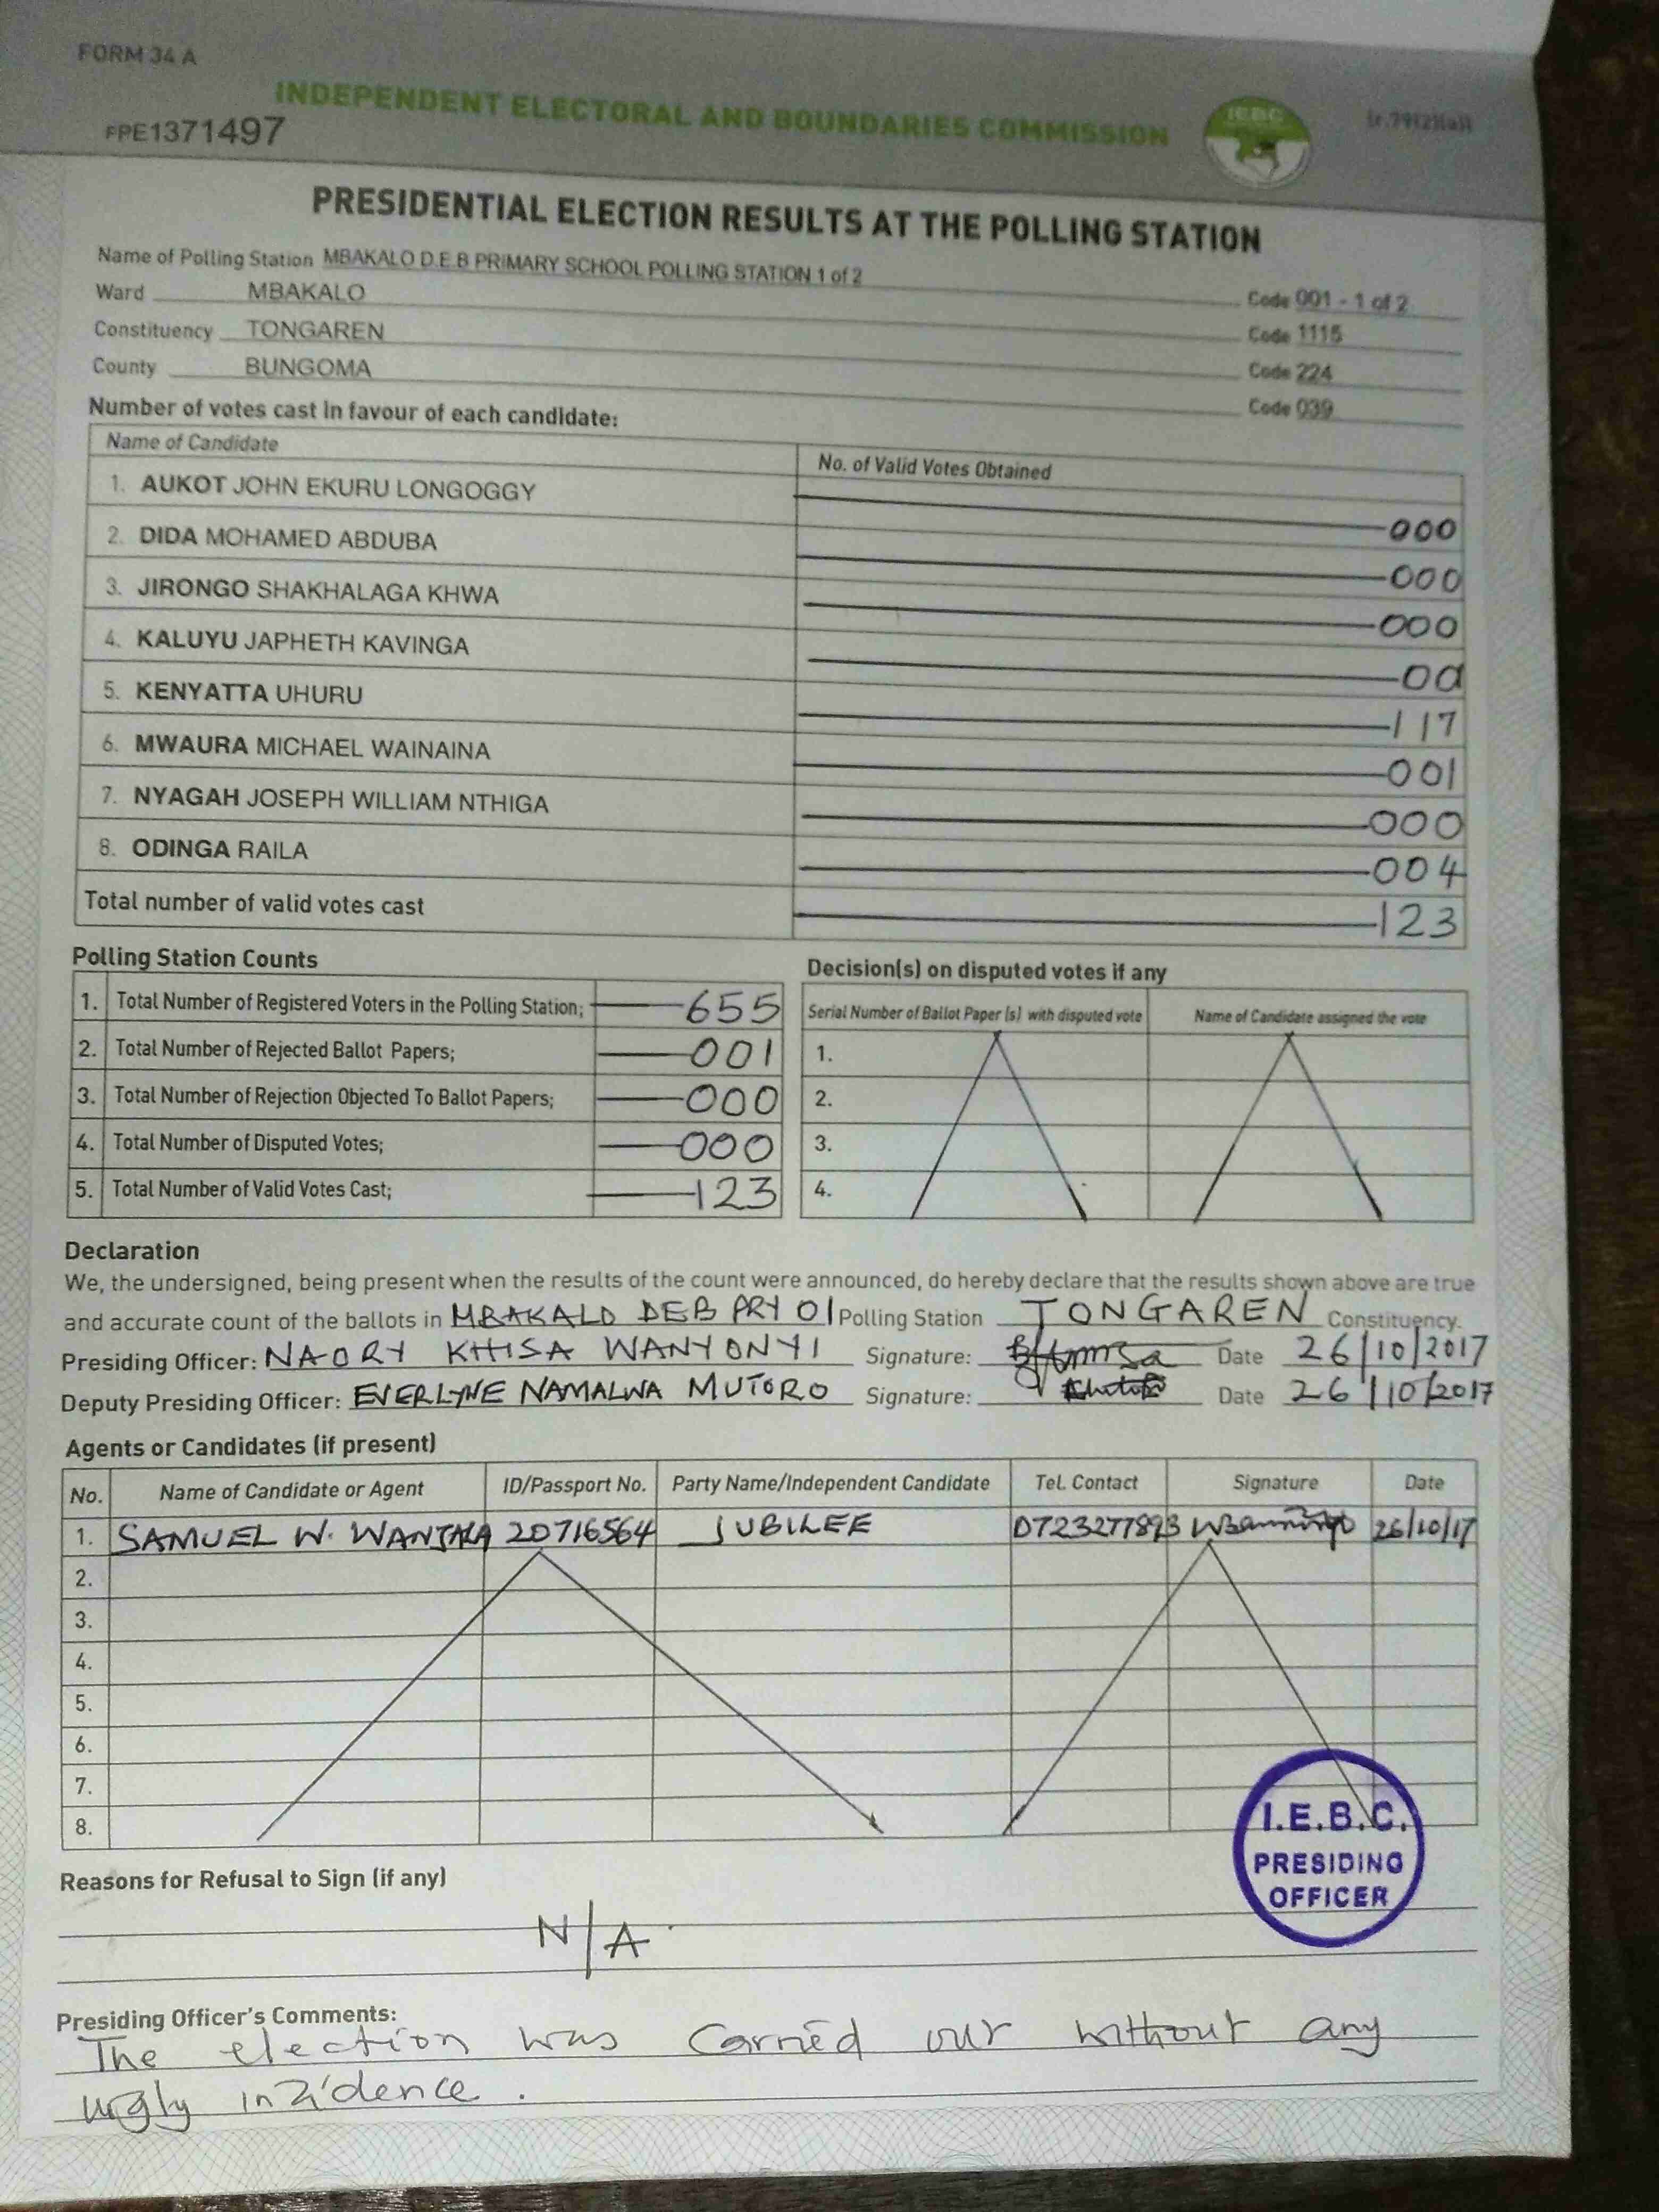 FORM 34 A
INDEPENDENT ELECTORAL AND BOUNDARIES COMMISSION
IEBC
(r.79(2)(a))
FPE1371497
PRESIDENTIAL ELECTION RESULTS AT THE POLLING STATION
Name of Polling Station MBAKALO D.E.B PRIMARY SCHOOL POLLING STATION 1 of 2 Code 001 - 1 of 2
Ward MBAKALO Code 1115
Constituency TONGAREN Code 224
County BUNGOMA Code 039
Number of votes cast in favour of each candidate:
Name of Candidate No. of Valid Votes Obtained
1. AUKOT JOHN EKURU LONGOGGY 000
2. DIDA MOHAMED ABDUBA 000
3. JIRONGO SHAKHALAGA KHWA 000
4. KALUYU JAPHETH KAVINGA 00
5. KENYATTA UHURU 117
6. MWAURA MICHAEL WAINAINA 001
7. NYAGAH JOSEPH WILLIAM NTHIGA 000
8. ODINGA RAILA 004
Total number of valid votes cast 123
Polling Station Counts
1. Total Number of Registered Voters in the Polling Station; 655
2. Total Number of Rejected Ballot Papers; 001
3. Total Number of Rejection Objected To Ballot Papers; 000
4. Total Number of Disputed Votes; 000
5. Total Number of Valid Votes Cast; 123
Decision(s) on disputed votes if any
Serial Number of Ballot Paper (s) with disputed vote Name of Candidate assigned the vote
1.
2.
3.
4.
Declaration
We, the undersigned, being present when the results of the count were announced, do hereby declare that the results shown above are true
and accurate count of the ballots in MBAKALO DEB PRY 01 Polling Station TONGAREN Constituency.
Presiding Officer: NAORY KHISA WANYONYI Signature: Date 26/10/2017
Deputy Presiding Officer: EVERLYNE NAMALWA MUTORO Signature: Date 26/10/2017
Agents or Candidates (if present)
No. Name of Candidate or Agent ID/Passport No. Party Name/Independent Candidate Tel. Contact Signature Date
1. SAMUEL W. WANJALA 20716564 JUBILEE 0723277893 26/10/17
2.
3.
4.
5.
6.
7.
8.
I.E.B.C.
PRESIDING
OFFICER
Reasons for Refusal to Sign (if any)
N/A
Presiding Officer's Comments:
The election was carried our without any
urgly inzidence.